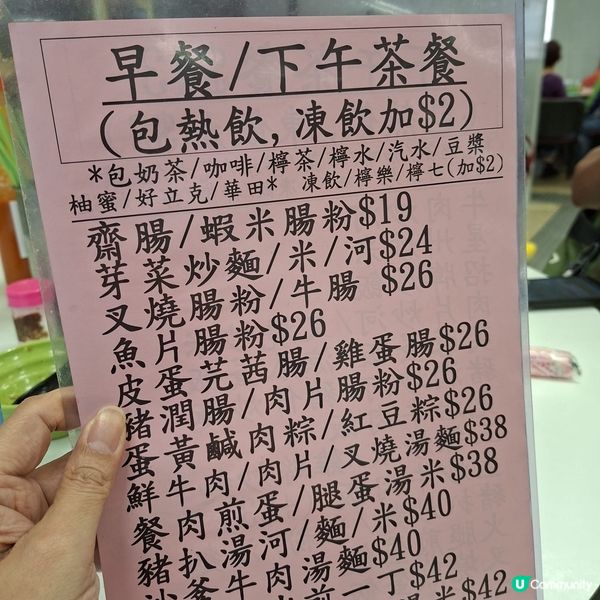 早餐/下午茶餐
(包熱飲,凍飲加$2)
*包奶茶/咖啡/檸茶/檸水/汽水/豆漿
柚蜜/好立克/華田* 凍飲/檸樂/檸七(加$2)
齋腸/蝦米腸粉$19
芽菜炒麵/米/河$24
叉燒腸粉/牛腸 $26
魚片腸粉$26
皮蛋芫茜腸/雞蛋腸$26
豬潤腸/肉片腸粉$26
蛋黃鹹肉粽/紅豆粽$26
鮮牛肉/肉片/叉燒湯麵$38
餐肉煎蛋/腿蛋湯米$38
豬扒湯河/麵/米$40
牛肉湯麵$40
煎一丁$42
湯米$42
U Community